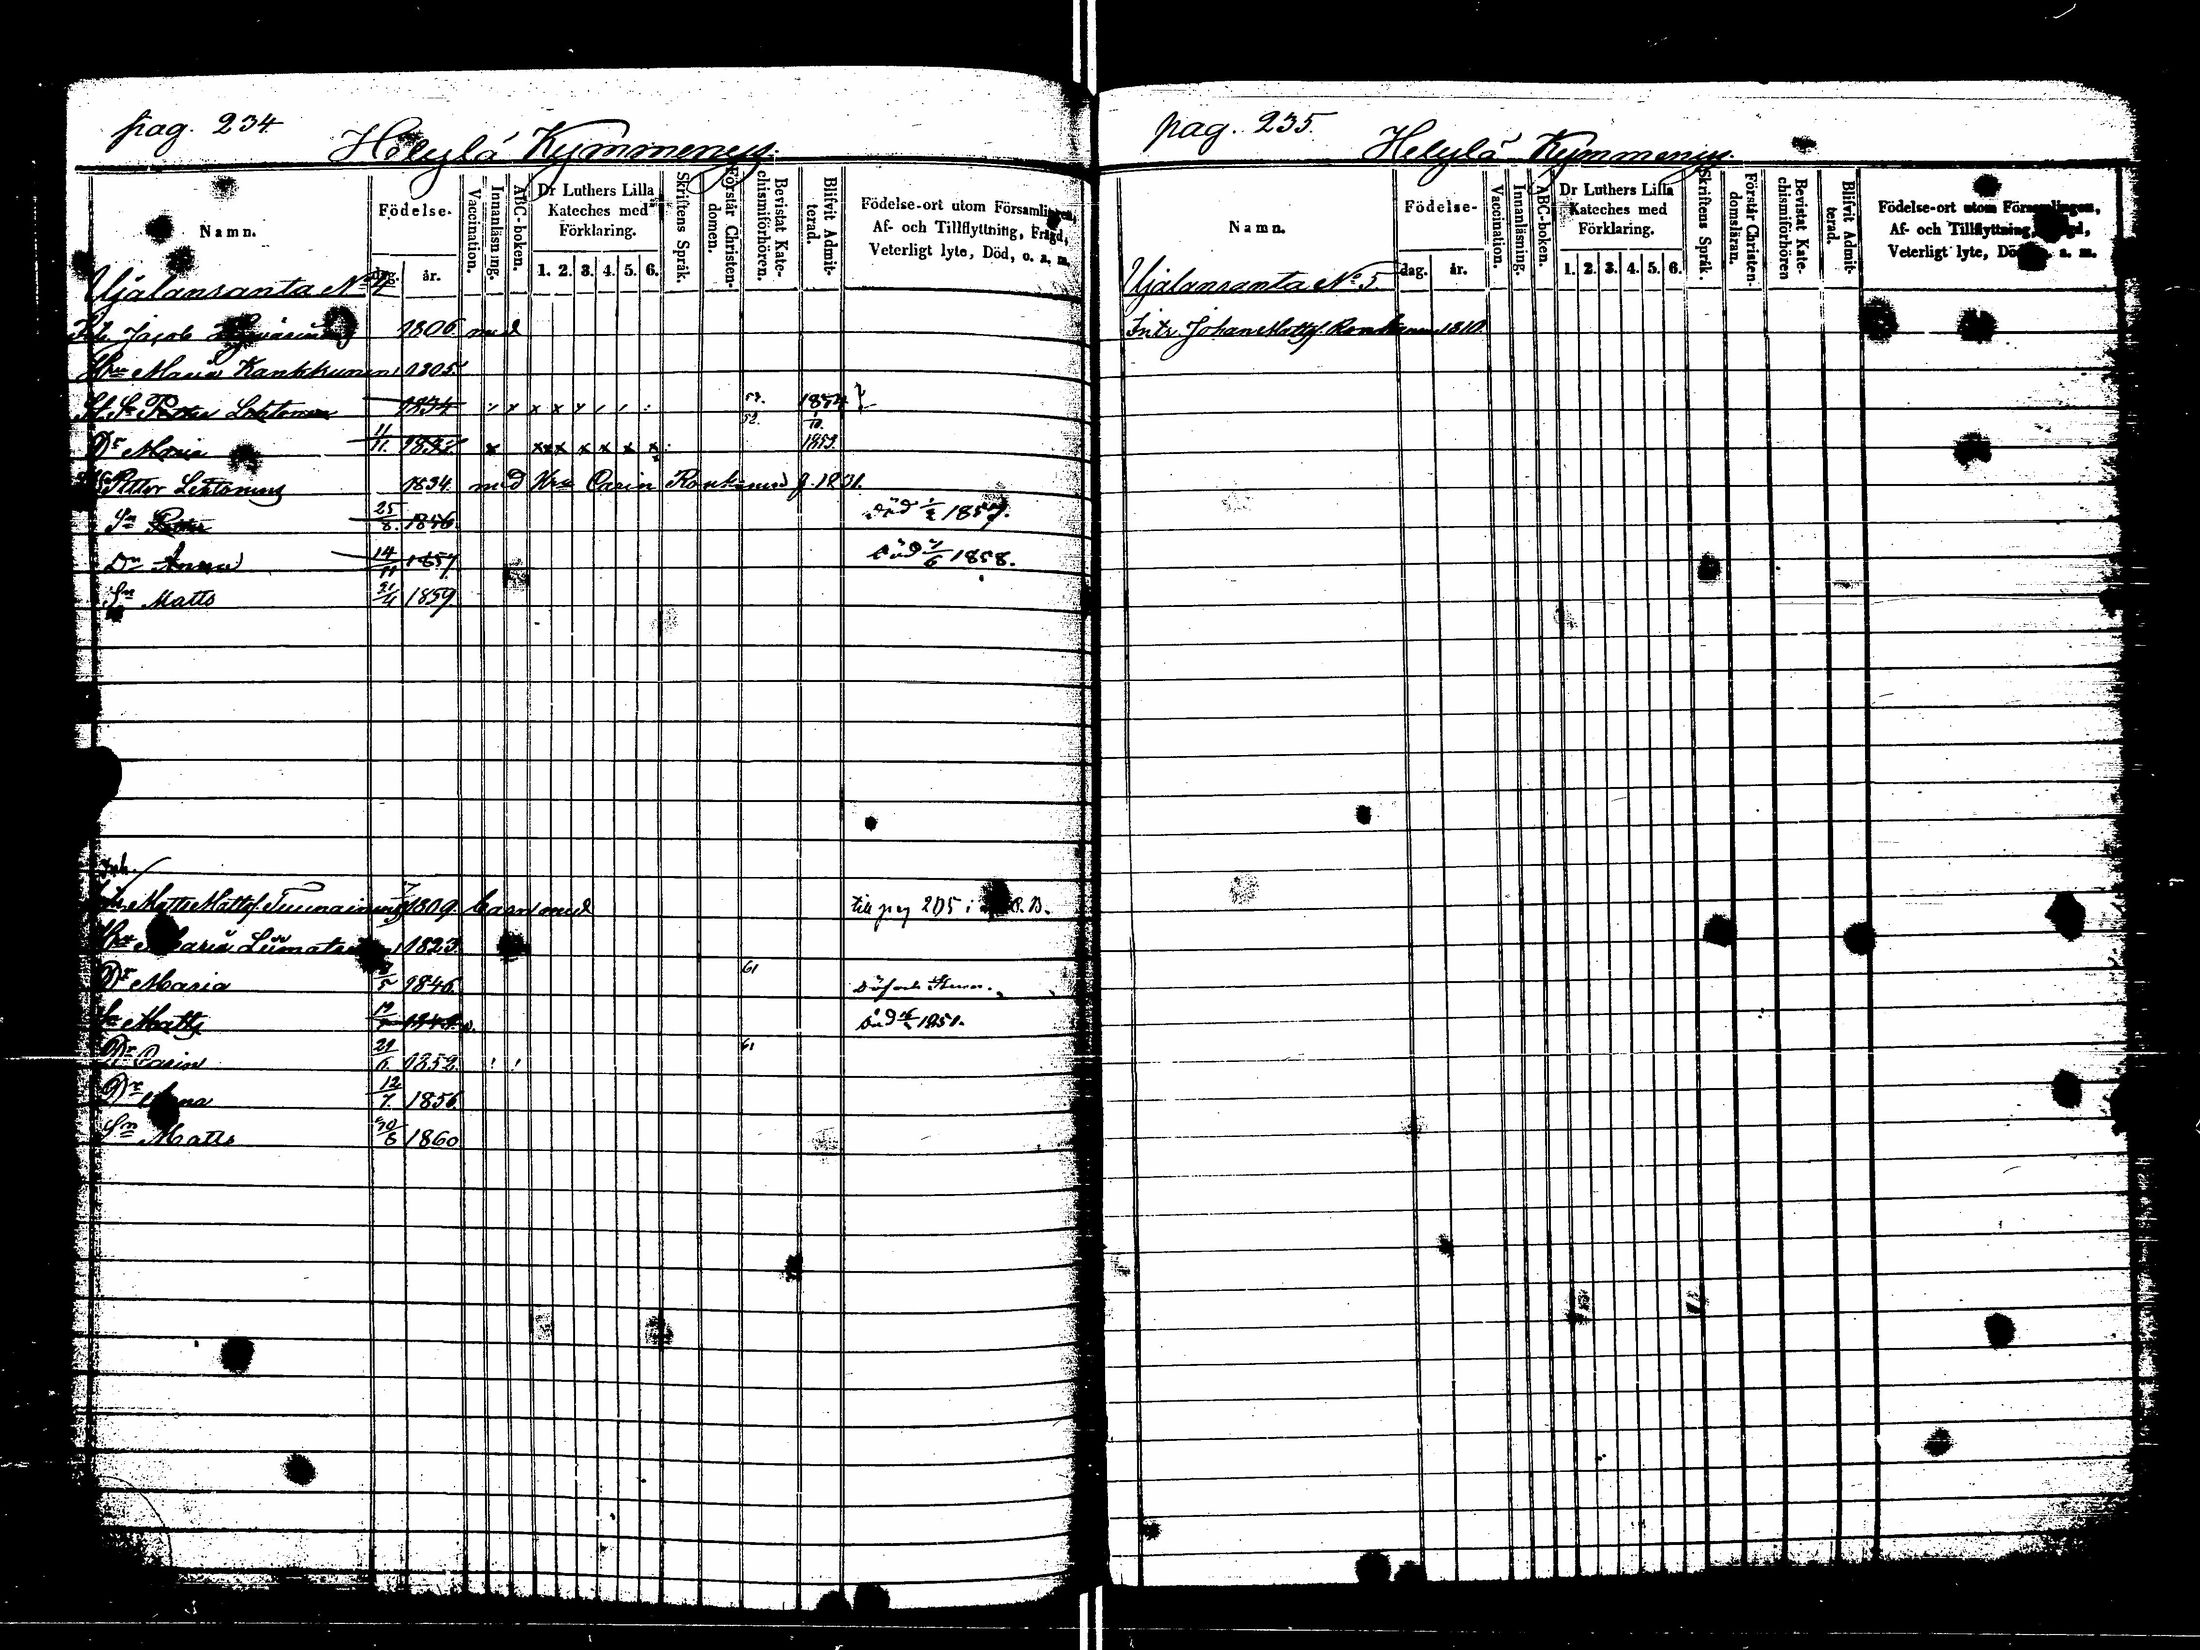 pag. 234
Helylä Kymmenys.
Namn.
Födelse-
dag. år.
Vaccination.
Innanläsning.
ABC-boken.
Dr Luthers Lilla
Kateches med
Förklaring.
1. 2. 3. 4. 5. 6.
Skriftens Språk.
Förstår Christen-
domen.
Bevistat Kate-
chismiförhören.
Blifvit Admit-
terad.
Födelse-ort utom Församlingen,
Af- och Tillflyttning, Frägd,
Veterligt lyte, Död, o. a. m.
Ujalanranta No 4
Jacob 1806 med
Hru Maria Kankkunen 1805
Petter Lehtonen 1834 57. 1854
52.
Dr Maria 11/11 1832 1853.
Petter Lehtonen 1834. med Hru Carin Ronkanen f. 1831.
Sn Petter 25/8 1856 död 1857.
Dr Anna 14/11 1857 död 1858.
Sn Matts 1859
Inh.
Matts Mattsf. 1809 barn med till pag 205 i
Hru Maria Liimatainen 1823
Dr Maria 1846 61
Sn Matts död 1851.
Dr Carin 29/6 1852 61
Dr Anna 12/7 1856
Sn Matts 30/6 1860
pag. 235.
Helylä Kymmenys.
Namn.
Födelse-
dag. år.
Vaccination.
Innanläsning.
ABC-boken.
Dr Luthers Lilla
Kateches med
Förklaring.
1. 2. 3. 4. 5. 6.
Skriftens Språk.
Förstår Christen-
domsläran.
Bevistat Kate-
chismiförhören
Blifvit Admit-
terad.
Födelse-ort utom Församlingen,
Af- och Tillflyttning,
Veterligt lyte, o. a. m.
Ujalanranta No 5.
Johan Mattsf. Ronkanen 1810